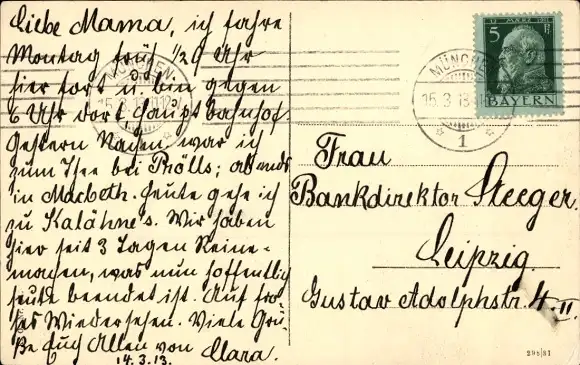 Liebe Mama, ich fahre
Montag früh 1/2 9 Uhr
hier fort u. bin gegen
6 Uhr dort Hauptbahnhof.
Gestern Nachm. war ich
zum Thee bei Prölls; abends
in Macbeth. Heute gehe ich
zu Kalähne's. Wir haben
hier seit 3 Tagen Reine-
machen, was nun hoffentlich
heute beendet ist. Auf fro-
hes Wiedersehen. Viele Grü-
ße Euch Allen von Clara.
14.3.13.
MÜNCHEN
15.3.13
MÜNCHEN
15.3.13
1
12 MÄRZ 1911
5 Pf.
BAYERN
Frau
Bankdirektor Steeger.
Leipzig.
Gustav Adolphstr. 4 II.